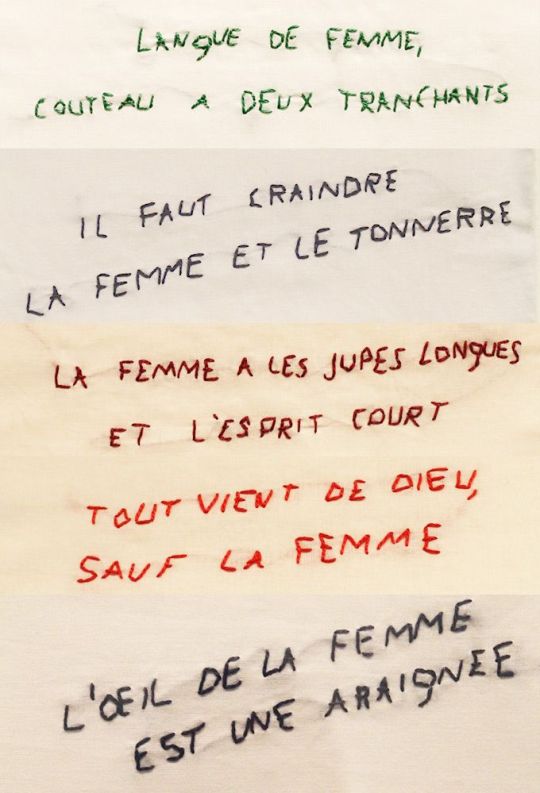 LANgUE DE FEMME,
COUTEAU A DEUX TRANCHANTS
IL FAUT CRAINDRE
LA FEMME ET LE TONNERRE
LA FEMME A LES JUPES LONgUES
ET L'ESPRIT COURT
TOUT VIENT DE DIEU,
SAUF LA FEMME
L'OEIL DE LA FEMME
EST UNE ARAIgNEE